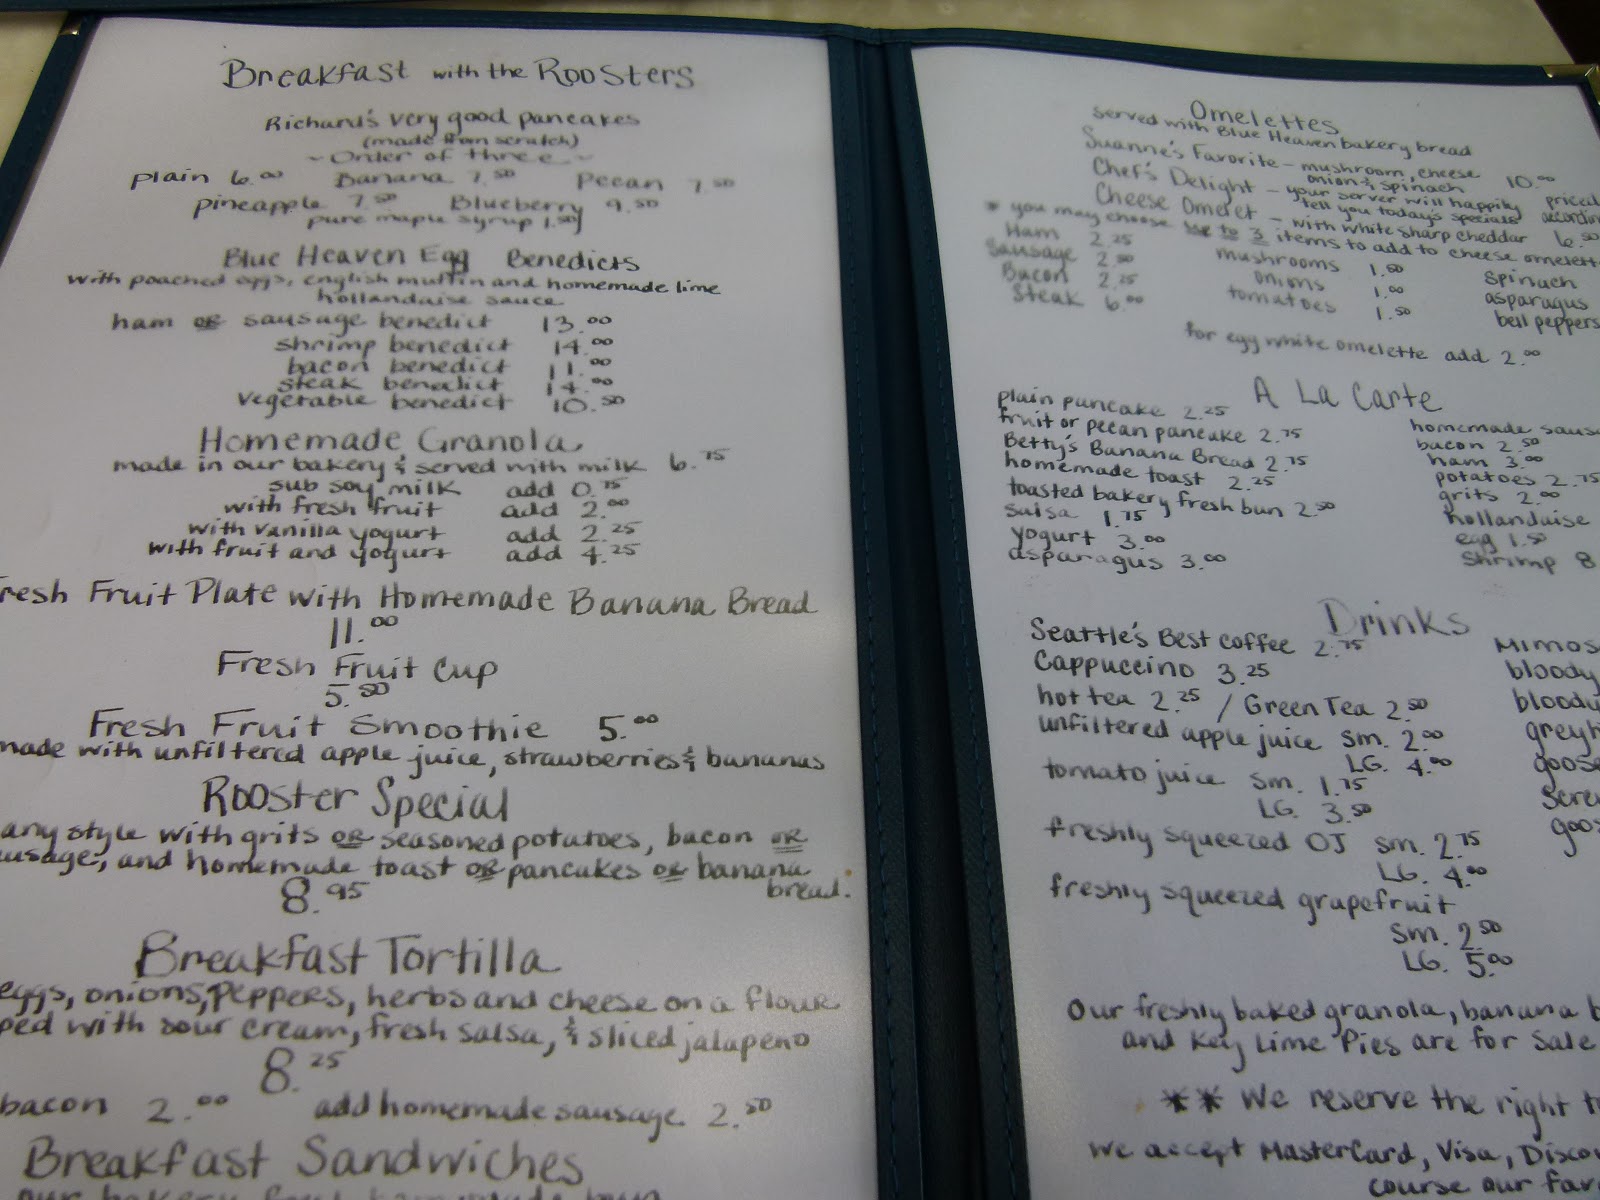 Breakfast with the Roosters
Richard's very good pancakes
(made from scratch)
~ Order of three ~
plain 6.00 Banana 7.50 Pecan 7.50
pineapple 7.50 Blueberry 9.50
pure maple syrup 1.50
Blue Heaven Egg Benedicts
with poached eggs, english muffin and homemade lime
hollandaise sauce
ham or sausage benedict 13.00
shrimp benedict 14.00
bacon benedict 11.00
steak benedict 14.00
vegetable benedict 10.50
Homemade Granola
made in our bakery & served with milk 6.75
sub soy milk add 0.75
with fresh fruit add 2.00
with vanilla yogurt add 2.25
with fruit and yogurt add 4.25
resh Fruit Plate with Homemade Banana Bread
11.00
Fresh Fruit Cup
5.50
Fresh Fruit Smoothie 5.00
made with unfiltered apple juice, strawberries & bananas
Rooster Special
any style with grits or seasoned potatoes, bacon or
usage, and homemade toast or pancakes or banana
bread.
8.95
Breakfast Tortilla
eggs, onions, peppers, herbs and cheese on a flour
ped with sour cream, fresh salsa, & sliced jalapeno
8.25
bacon 2.00 add homemade sausage 2.50
Breakfast Sandwiches
our bakery
Omelettes
served with Blue Heaven bakery bread
Suanne's Favorite - mushroom, cheese
onion & spinach 10.00
Chef's Delight - your server will happily priced
tell you today's specials accordin
Cheese Omelet - with white sharp cheddar 6.50
* you may choose up to 3 items to add to cheese omelett
Ham 2.25 mushrooms 1.50 spinach
Sausage 2.50 onions 1.00 asparagus
Bacon 2.25 tomatoes 1.50 bell peppers
Steak 6.00
for egg white omelette add 2.00
A La Carte
plain pancake 2.25 homemade saus
fruit or pecan pancake 2.75 bacon 2.50
Betty's Banana Bread 2.75 ham 3.00
homemade toast 2.25 potatoes 2.75
toasted bakery fresh bun 2.50 grits 2.00
salsa 1.75 hollandaise
yogurt 3.00 egg 1.50
asparagus 3.00 shrimp 8
Drinks
Seattle's Best coffee 2.75 Mimos
Cappuccino 3.25 bloody
hot tea 2.25 / Green Tea 2.50 bloody
unfiltered apple juice sm. 2.00 greyh
LG. 4.00 goose
tomato juice sm. 1.75 Scre
LG. 3.50 goos
freshly squeezed OJ sm. 2.75
LG. 4.00
freshly squeezed grapefruit
sm. 2.50
LG. 5.00
Our freshly baked granola, banana b
and Key Lime Pies are for sale
** We reserve the right t
We accept MasterCard, Visa, Disco
course our fav